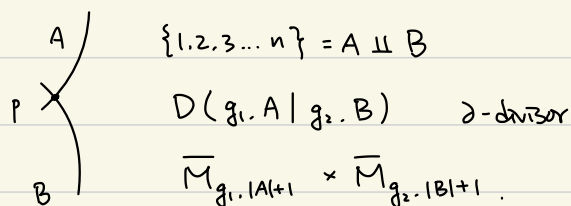 A
{1.2.3... n} = A ⨿ B
P
D(g₁.A | g₂.B) ∂-divisor
B
M̅_{g₁.|A|+1} × M̅_{g₂.|B|+1} .